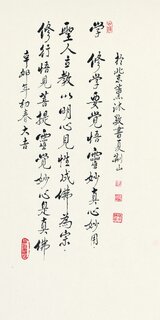 學
修學要覺悟靈妙真心妙用
聖人立教以明心見性成佛為宗
修行悟見菩提靈覺妙心是真佛
辛卯年初春大吉
於北京 沐敬書 山